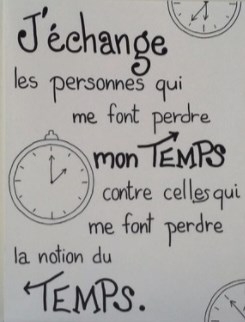 J'échange
les personnes qui
me font perdre
mon TEMPS
contre celles qui
me font perdre
la notion du
TEMPS.